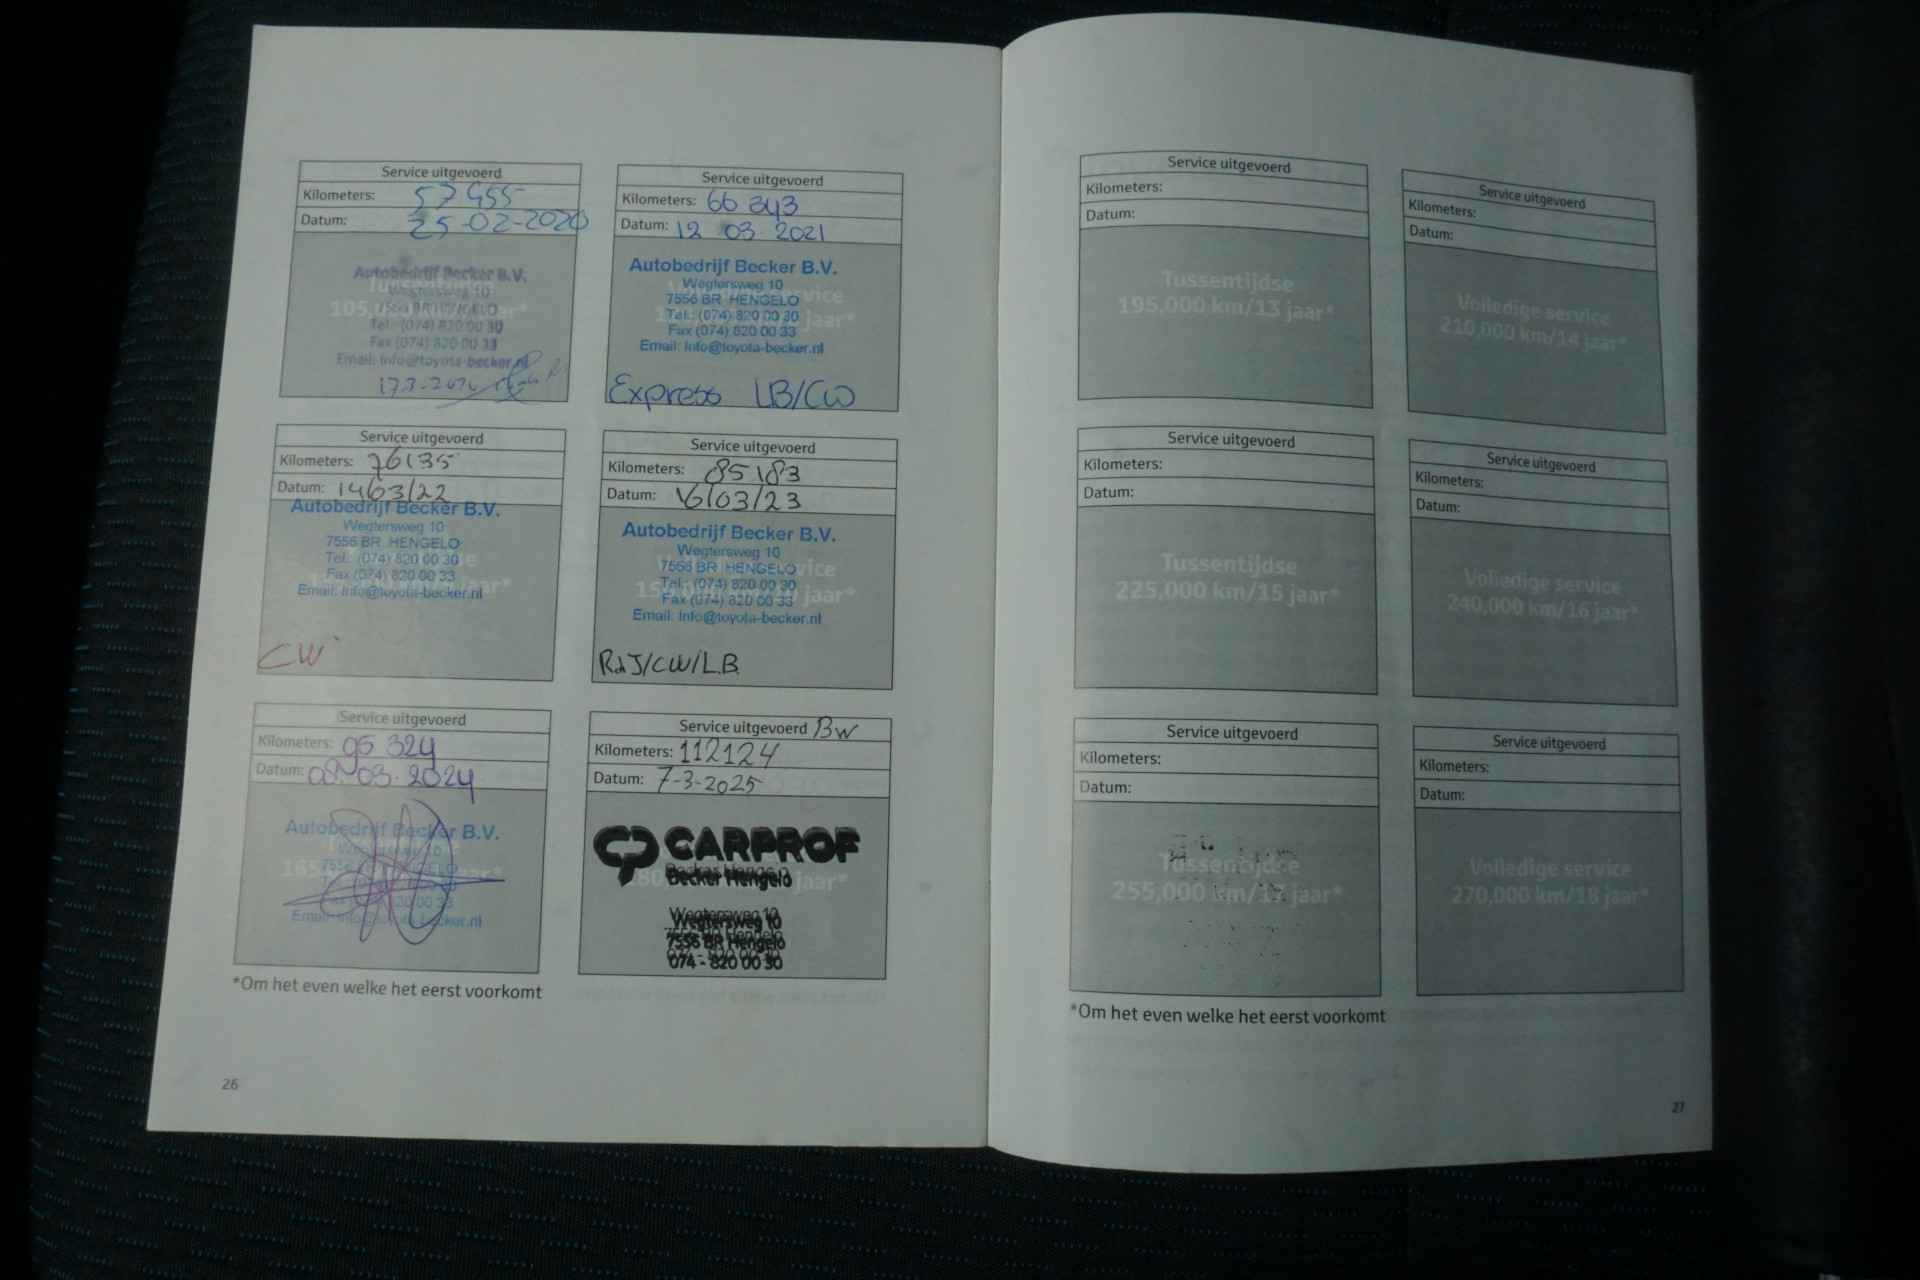 Service uitgevoerd
Kilometers: 57455
Datum: 25-02-2020
Autobedrijf Becker B.V.
Wegtersweg 10
7556 BR HENGELO
Tel.: (074) 820 00 30
Fax (074) 820 00 33
Email: Info@toyota-becker.nl
Service uitgevoerd
Kilometers: 66 343
Datum: 12 03 2021
Autobedrijf Becker B.V.
Wegtersweg 10
7556 BR HENGELO
Tel.: (074) 820 00 30
Fax (074) 820 00 33
Email: Info@toyota-becker.nl
Express LB/CW
Service uitgevoerd
Kilometers: 76135
Datum: 14/03/22
Autobedrijf Becker B.V.
Wegtersweg 10
7556 BR HENGELO
Tel.: (074) 820 00 30
Fax (074) 820 00 33
Email: Info@toyota-becker.nl
CW
Service uitgevoerd
Kilometers: 85183
Datum: 16/03/23
Autobedrijf Becker B.V.
Wegtersweg 10
7556 BR HENGELO
Tel.: (074) 820 00 30
Fax (074) 820 00 33
Email: Info@toyota-becker.nl
RdJ/CW/L.B.
Service uitgevoerd
Kilometers: 95 324
Datum: 08-03-2024
Autobedrijf Becker B.V.
Wegtersweg 10
Email: Info@toyota-becker.nl
Service uitgevoerd BW
Kilometers: 112124
Datum: 7-3-2025
CARPROF
Becker Hengelo
Wegtersweg 10
7556 BR Hengelo
074 - 820 00 30
*Om het even welke het eerst voorkomt
26
Service uitgevoerd
Kilometers:
Datum:
Tussentijdse
195,000 km/13 jaar*
Service uitgevoerd
Kilometers:
Datum:
Volledige service
210,000 km/14 jaar*
Service uitgevoerd
Kilometers:
Datum:
Tussentijdse
225,000 km/15 jaar*
Service uitgevoerd
Kilometers:
Datum:
Volledige service
240,000 km/16 jaar*
Service uitgevoerd
Kilometers:
Datum:
Tussentijdse
255,000 km/17 jaar*
Service uitgevoerd
Kilometers:
Datum:
Volledige service
270,000 km/18 jaar*
*Om het even welke het eerst voorkomt
27